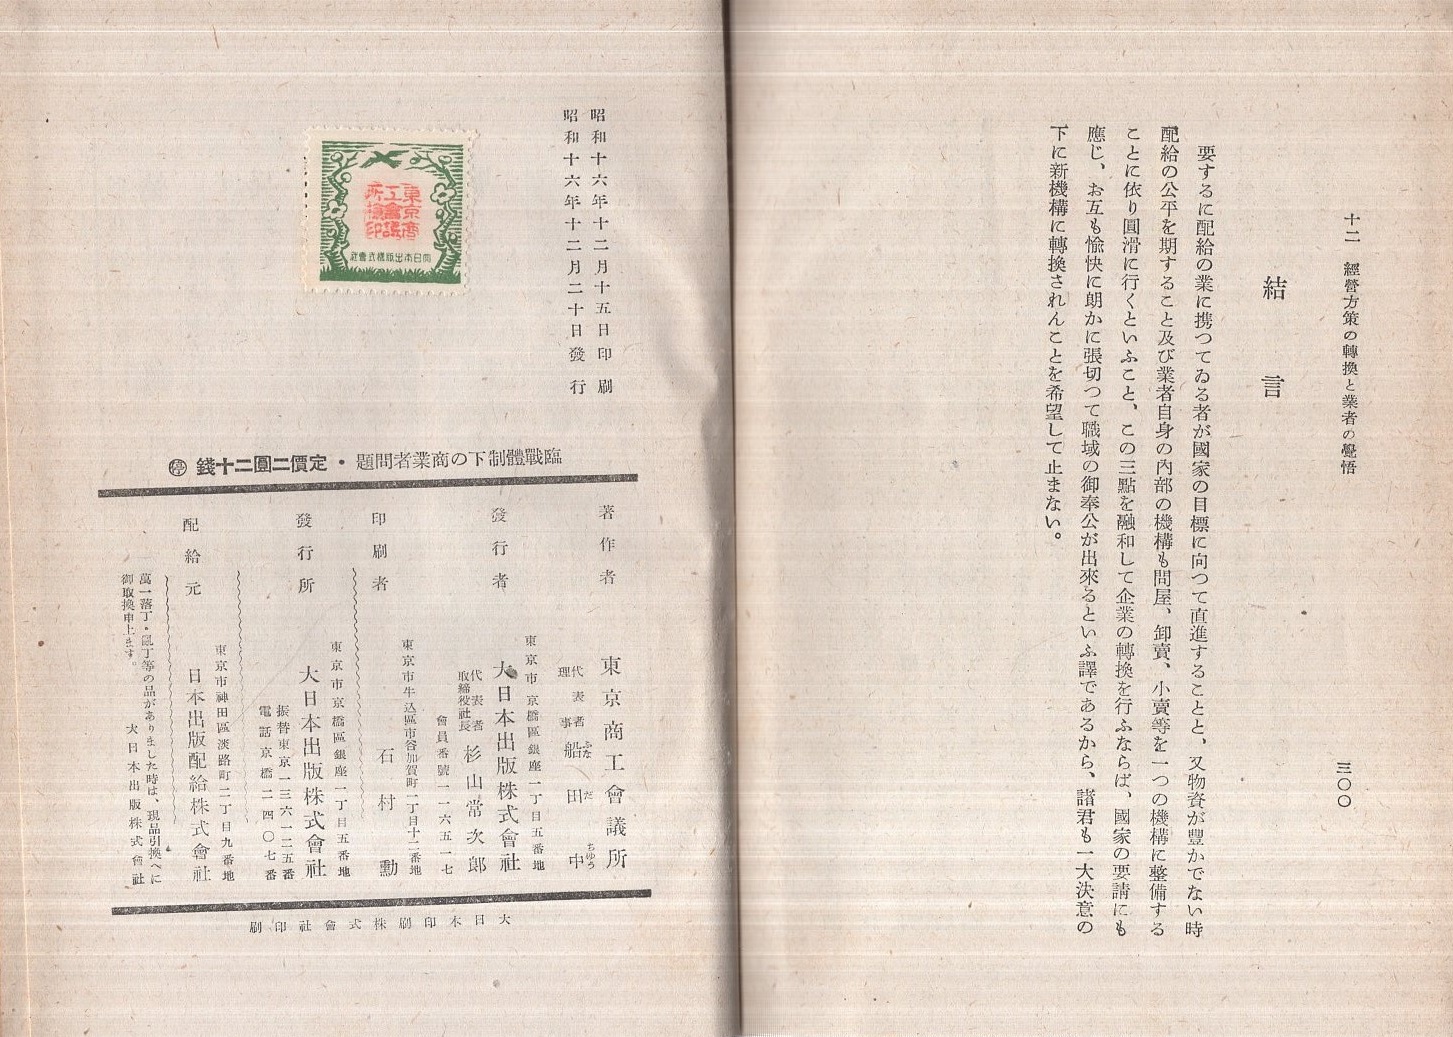 十二 經營方策の轉換と業者の覺悟
三〇〇
結言
要するに配給の業に携つてゐる者が國家の目標に向つて直進することと、又物資が豐かでない時
配給の公平を期すること及び業者自身の內部の機構も問屋、卸賣、小賣等を一つの機構に整備する
ことに依り圓滑に行くといふこと、この三點を融和して企業の轉換を行ふならば、國家の要請にも
應じ、お互も愉快に朗かに張切つて職域の御奉公が出來るといふ譯であるから、諸君も一大決意の
下に新機構に轉換されんことを希望して止まない。
昭和十六年十二月十五日印刷
昭和十六年十二月二十日發行
東京商
工會議
所檢印
社會式株版出本日大
錢十二圓二價定・題問者業商の下制體戰臨
停
著作者
東京商工會議所
代表者
理事
船田中
ふなだちゆう
發行者
東京市京橋區銀座一丁目五番地
大日本出版株式會社
代表者
取締役社長
杉山常次郎
會員番號一一六五一七
印刷者
東京市牛込區市谷加賀町一丁目十二番地
石村勳
發行所
東京市京橋區銀座一丁目五番地
大日本出版株式會社
振替東京一三六一二五番
電話京橋二四〇七番
配給元
東京市神田區淡路町二丁目九番地
日本出版配給株式會社
萬一落丁・亂丁等の品がありました時は、現品引換へに
御取換申上ます。
大日本出版株式會社
刷印社會式株刷印本日大